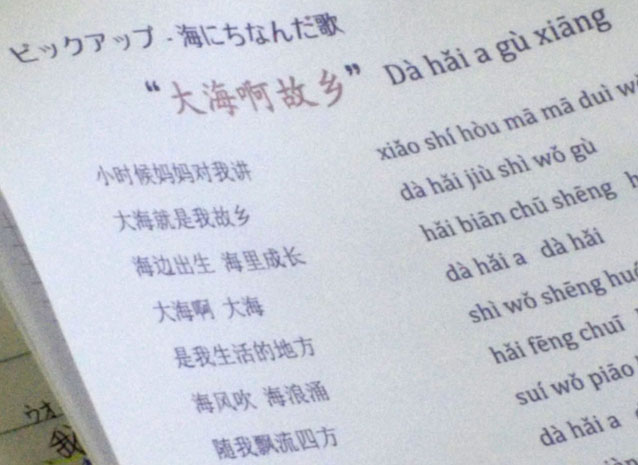 ピックアップ - 海にちなんだ歌
“大海啊故乡” Dà hǎi a gù xiāng
小时候妈妈对我讲 xiǎo shí hòu mā mā duì
大海就是我故乡 dà hǎi jiù shì wǒ gù
海边出生 海里成长 hǎi biān chū shēng
大海啊 大海 dà hǎi a dà hǎi
是我生活的地方 shì wǒ shēng
海风吹 海浪涌 hǎi fēng chuī
随我飘流四方 suí wǒ piāo
dà hǎi a
我